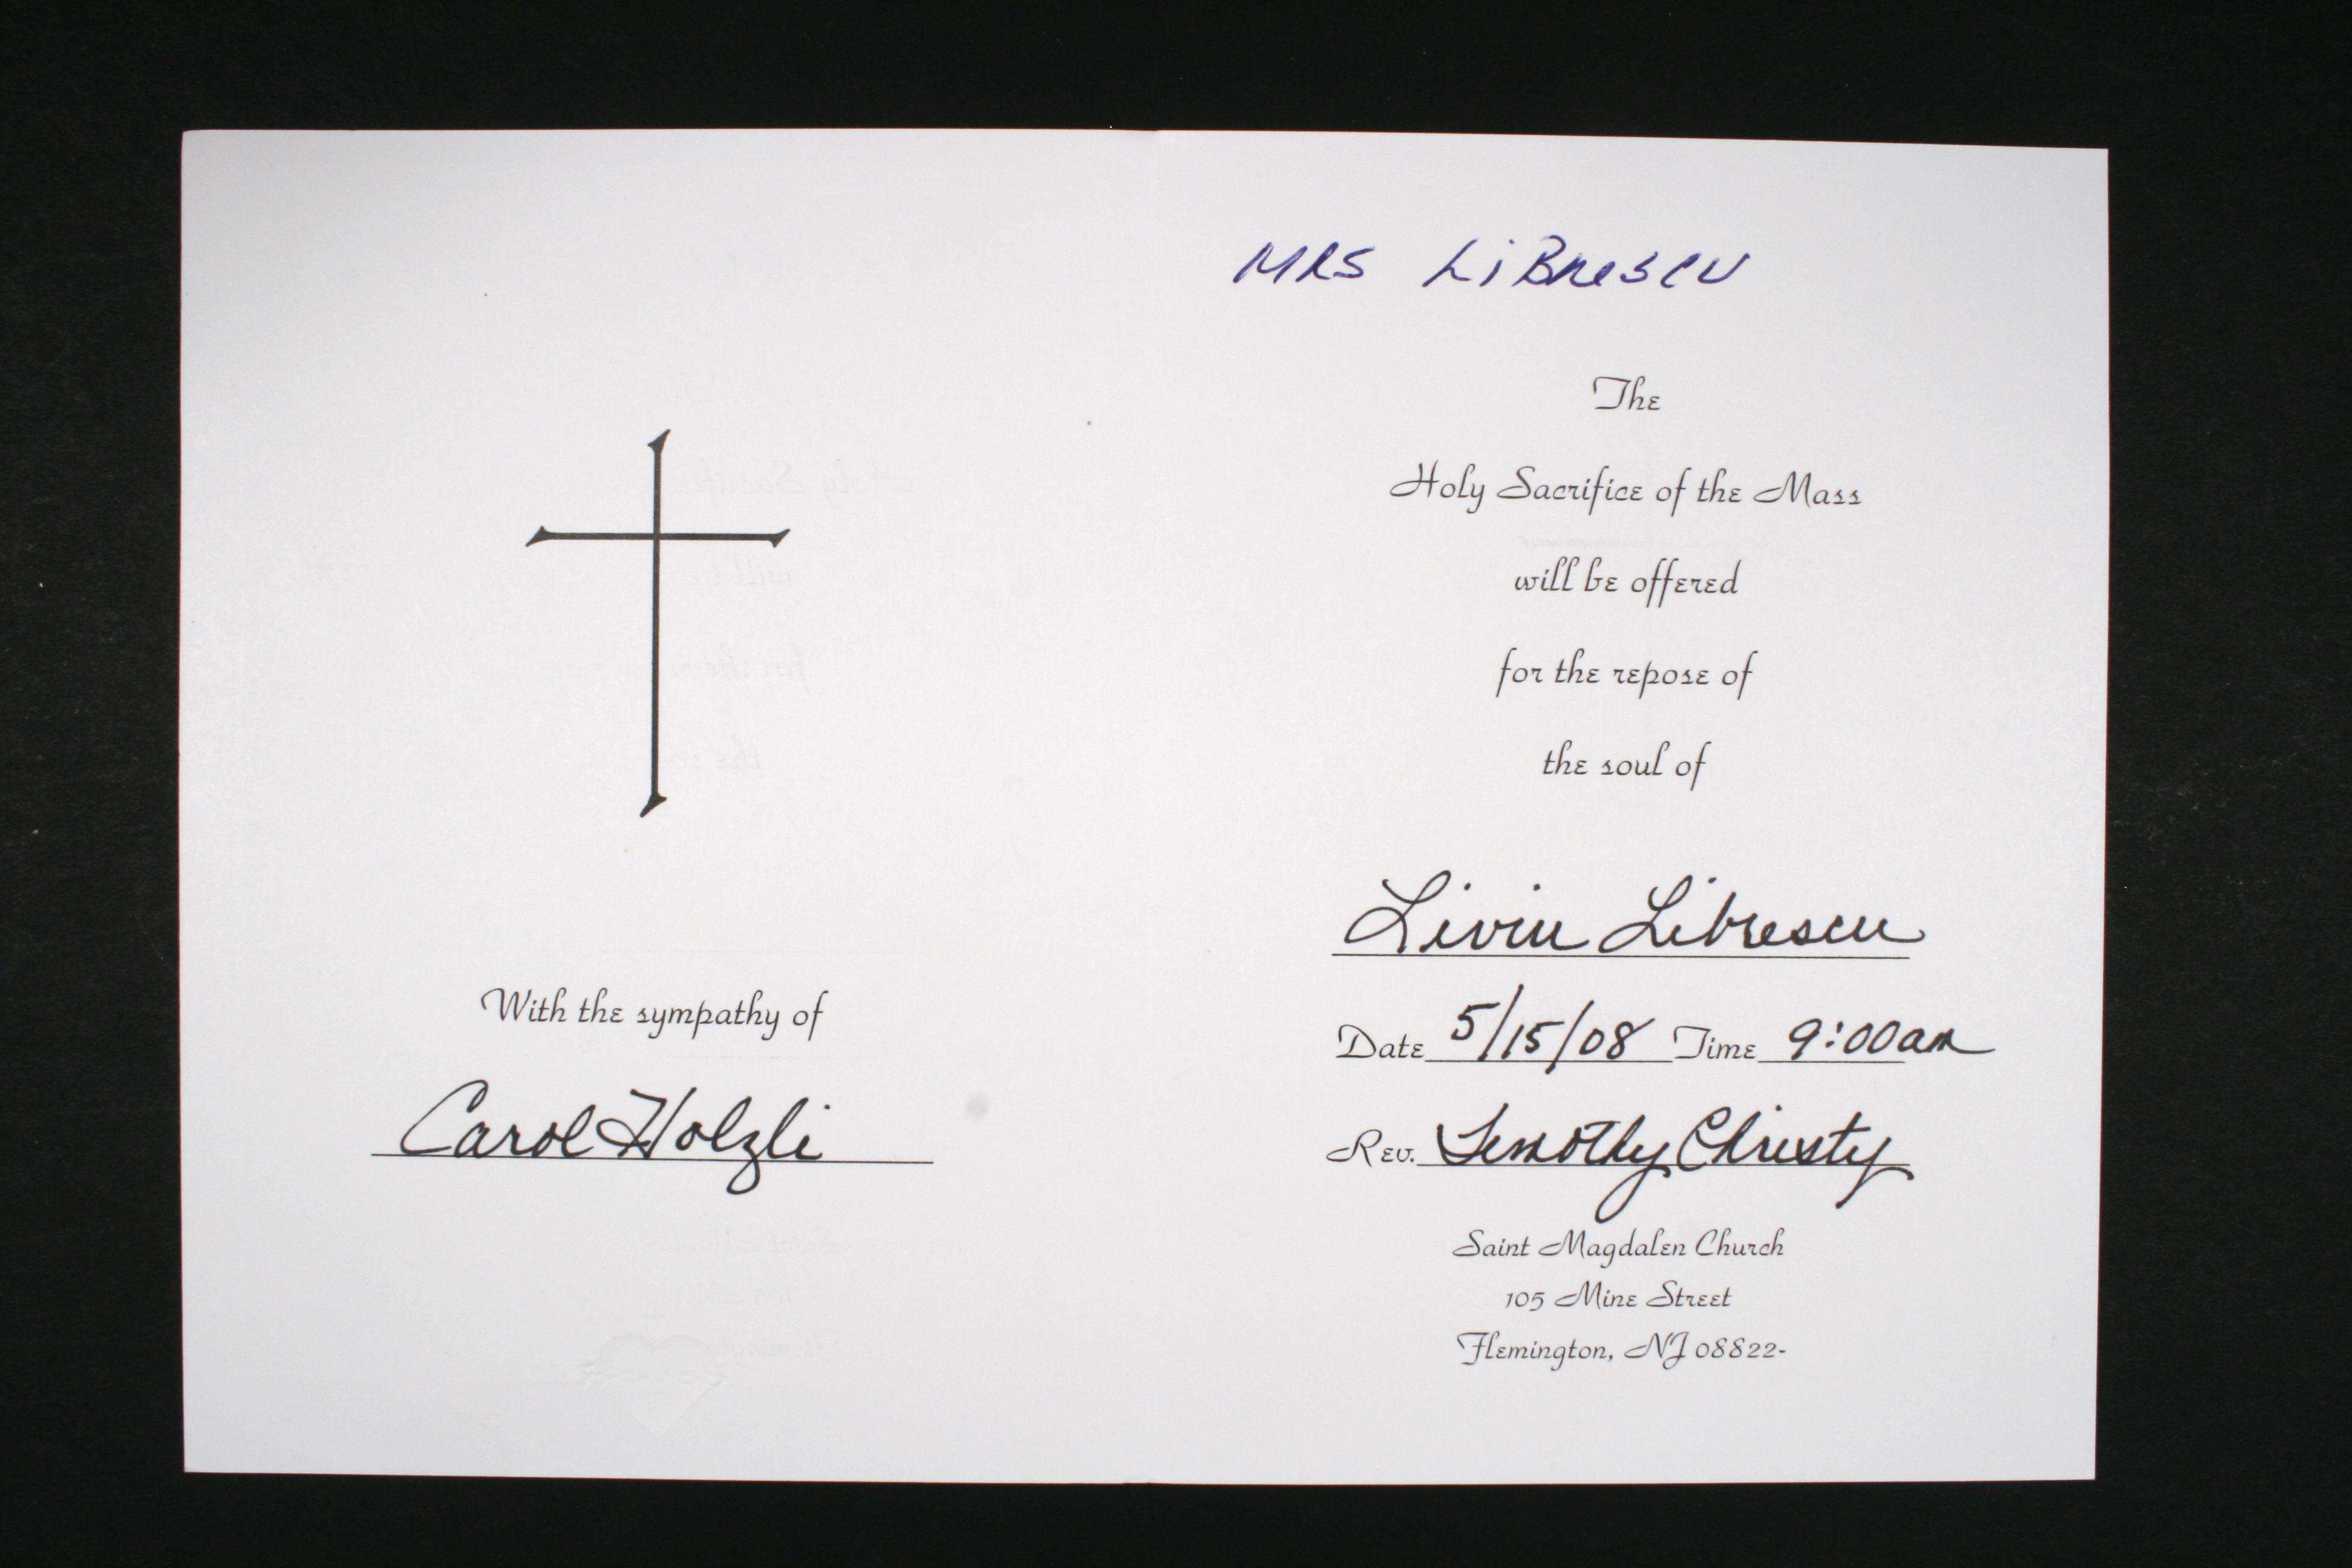 With the sympathy of
Carol Holzli
MRS LiBrescu
The
Holy Sacrifice of the Mass
will be offered
for the repose of
the soul of
Liviu Librescu
Date 5/15/08 Time 9:00am
Rev. Timothy Christy
Saint Magdalen Church
105 Mine Street
Flemington, NJ 08822-